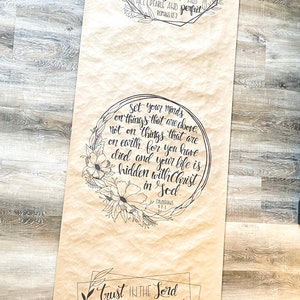 and perfect
Romans 12:2
Set your minds
on things that are above,
not on things that are
on earth for you have
died and your life is
hidden with Christ
in God
Colossians
Trust IN THE Lord